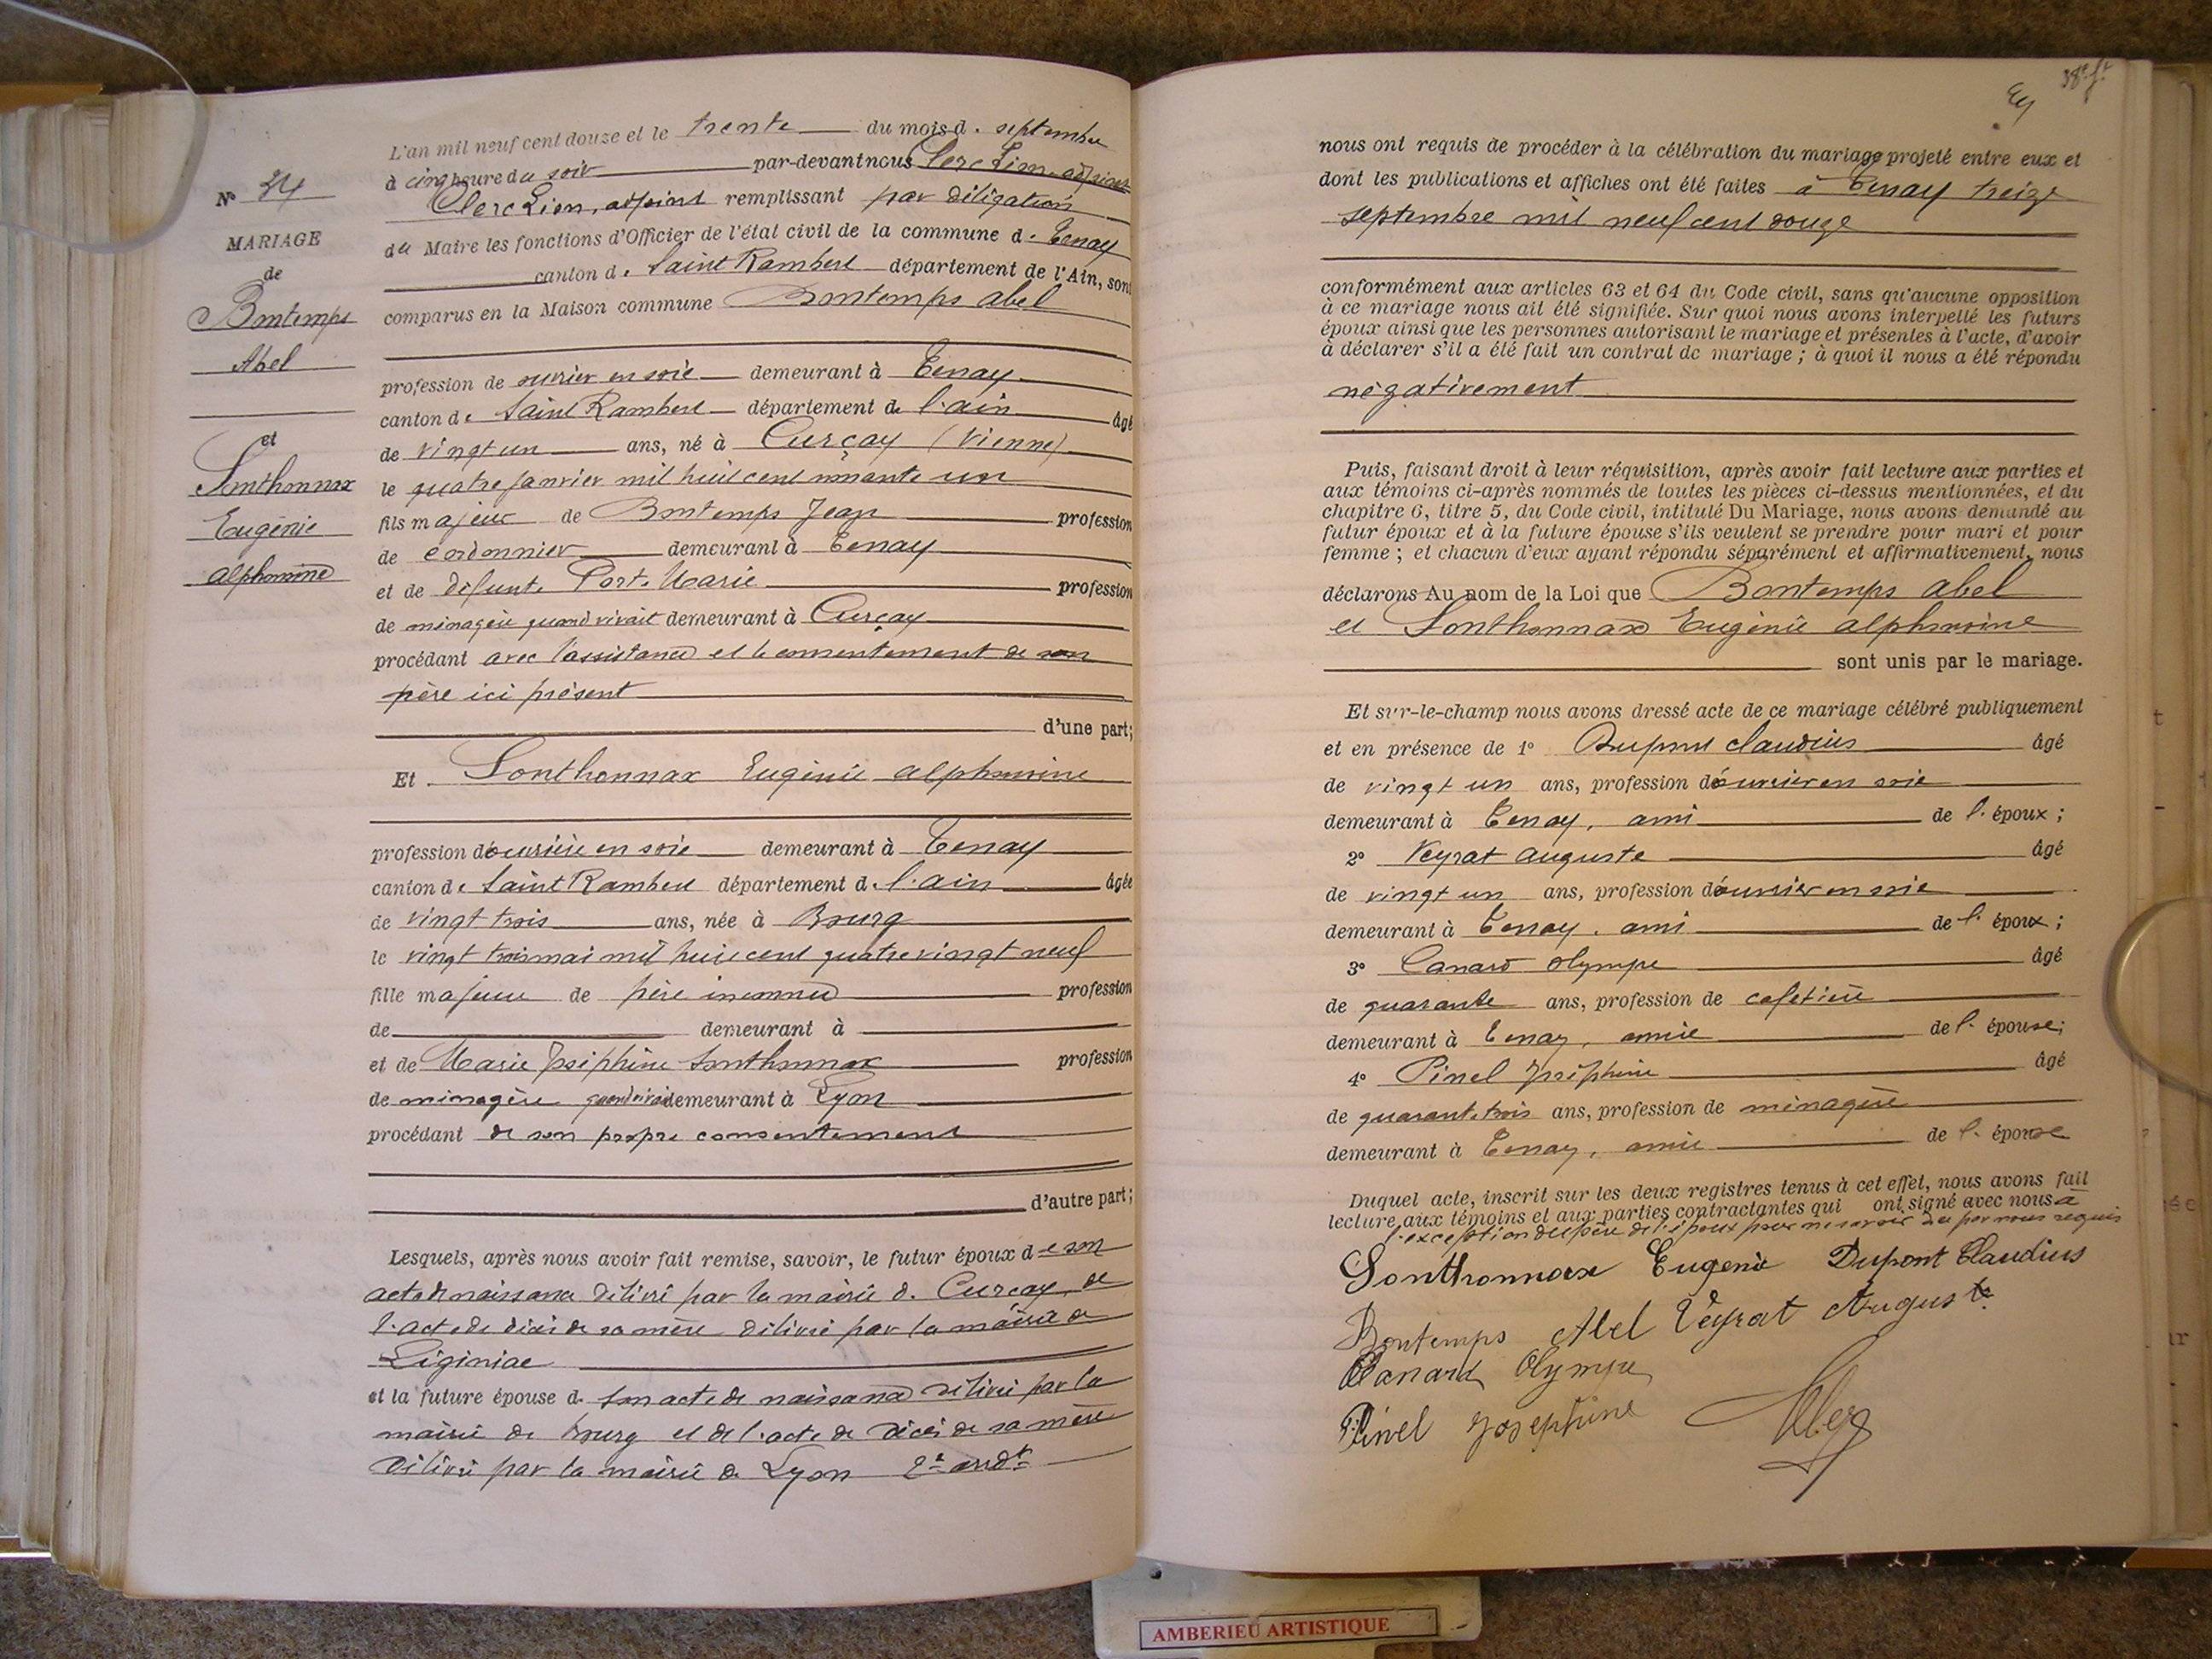 N° 34
MARIAGE
de
Bontemps
Abel
et
Sonthonnax
Eugénie
alphonsine
L'an mil neuf cent douze et le trente du mois d. septembre
à cinq heure du soir par-devant nous Clerc Léon, adjoint
Clerc Léon, adjoint remplissant par délégation
du Maire les fonctions d'Officier de l'état civil de la commune d. Tenay
canton d. Saint Rambert département de l'Ain, sont
comparus en la Maison commune Bontemps abel
profession de ouvrier en soie demeurant à Tenay
canton de Saint Rambert département de l'ain âgé
de vingt un ans, né à Curçay (Vienne)
le quatre janvier mil huit cent nonante un
fils majeur de Bontemps Jean profession
de cordonnier demeurant à Tenay
et de défunte Port. Marie profession
de ménagère quand vivait demeurant à Curçay
procédant avec l'assistance et le consentement de son
père ici présent
d'une part;
Et Sonthonnax Eugénie alphonsine
profession d'ouvrière en soie demeurant à Tenay
canton de Saint Rambert département d. l'ain âgée
de vingt trois ans, née à Bourg
le vingt trois mai mil huit cent quatre vingt neuf
fille majeure de père inconnu profession
de demeurant à
et de Marie Joséphine Sonthonnax profession
de ménagère quand vivait demeurant à Lyon
procédant de son propre consentement
d'autre part;
Lesquels, après nous avoir fait remise, savoir, le futur époux de son
acte de naissance délivré par la mairie d. Curçay, de
l'acte de décès de sa mère délivré par la mairie de
Liginiac
et la future épouse d. son acte de naissance délivré par la
mairie de Bourg et de l'acte de décès de sa mère
délivré par la mairie de Lyon 2e arrdt
38e ft
nous ont requis de procéder à la célébration du mariage projeté entre eux et
dont les publications et affiches ont été faites à Tenay treize
septembre mil neuf cent douze
conformément aux articles 63 et 64 du Code civil, sans qu'aucune opposition
à ce mariage nous ait été signifiée. Sur quoi nous avons interpellé les futurs
époux ainsi que les personnes autorisant le mariage et présentes à l'acte, d'avoir
à déclarer s'il a été fait un contrat de mariage ; à quoi il nous a été répondu
négativement
Puis, faisant droit à leur réquisition, après avoir fait lecture aux parties et
aux témoins ci-après nommés de toutes les pièces ci-dessus mentionnées, et du
chapitre 6, titre 5, du Code civil, intitulé Du Mariage, nous avons demandé au
futur époux et à la future épouse s'ils veulent se prendre pour mari et pour
femme ; et chacun d'eux ayant répondu séparément et affirmativement, nous
déclarons Au nom de la Loi que Bontemps abel
et Sonthonnax Eugénie alphonsine
sont unis par le mariage.
Et sur-le-champ nous avons dressé acte de ce mariage célébré publiquement
et en présence de 1° Dupont claudius âgé
de vingt un ans, profession d'ouvrier en soie
demeurant à Tenay, ami de l. époux ;
2° Veyrat auguste âgé
de vingt un ans, profession d'ouvrier en soie
demeurant à Tenay, ami de l. époux ;
3° Canard olympe âgé
de quarante ans, profession de cafetière
demeurant à Tenay, amie de l. épouse;
4° Pinel Joséphine âgé
de quarante trois ans, profession de ménagère
demeurant à Tenay, amie de l. épouse
Duquel acte, inscrit sur les deux registres tenus à cet effet, nous avons fait
lecture aux témoins et aux parties contractantes qui ont signé avec nous à
l'exception du père de l'époux pour ne savoir de par nous requis
Sonthonnax Eugenie Dupont Claudius
Bontemps Abel Veyrat Auguste
Canard Olympe
Pinel Josephine
AMBERIEU ARTISTIQUE